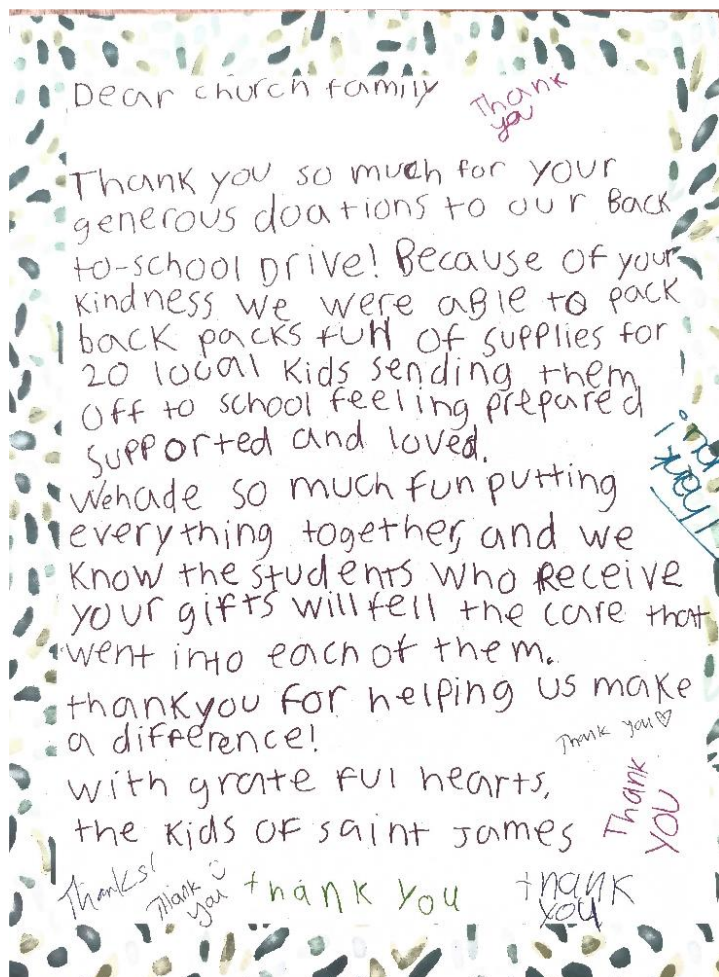 Dear church family
Thank
you
Thank you so much for your
generous doations to our Back
to-school Drive! Because of your
Kindness we were able to pack
back packs full of supplies for
20 local Kids sending them
off to school feeling prepared
supported and loved.
thank
you!
Wehade so much fun putting
everything together, and we
Know the students who Receive
your gifts will fell the care that
went into each of them.
thankyou for helping us make
a difference!
Thank you♡
with grate ful hearts,
the Kids of saint James
Thank
YOU
Thanks!
Thank
you
thank you
thank
you